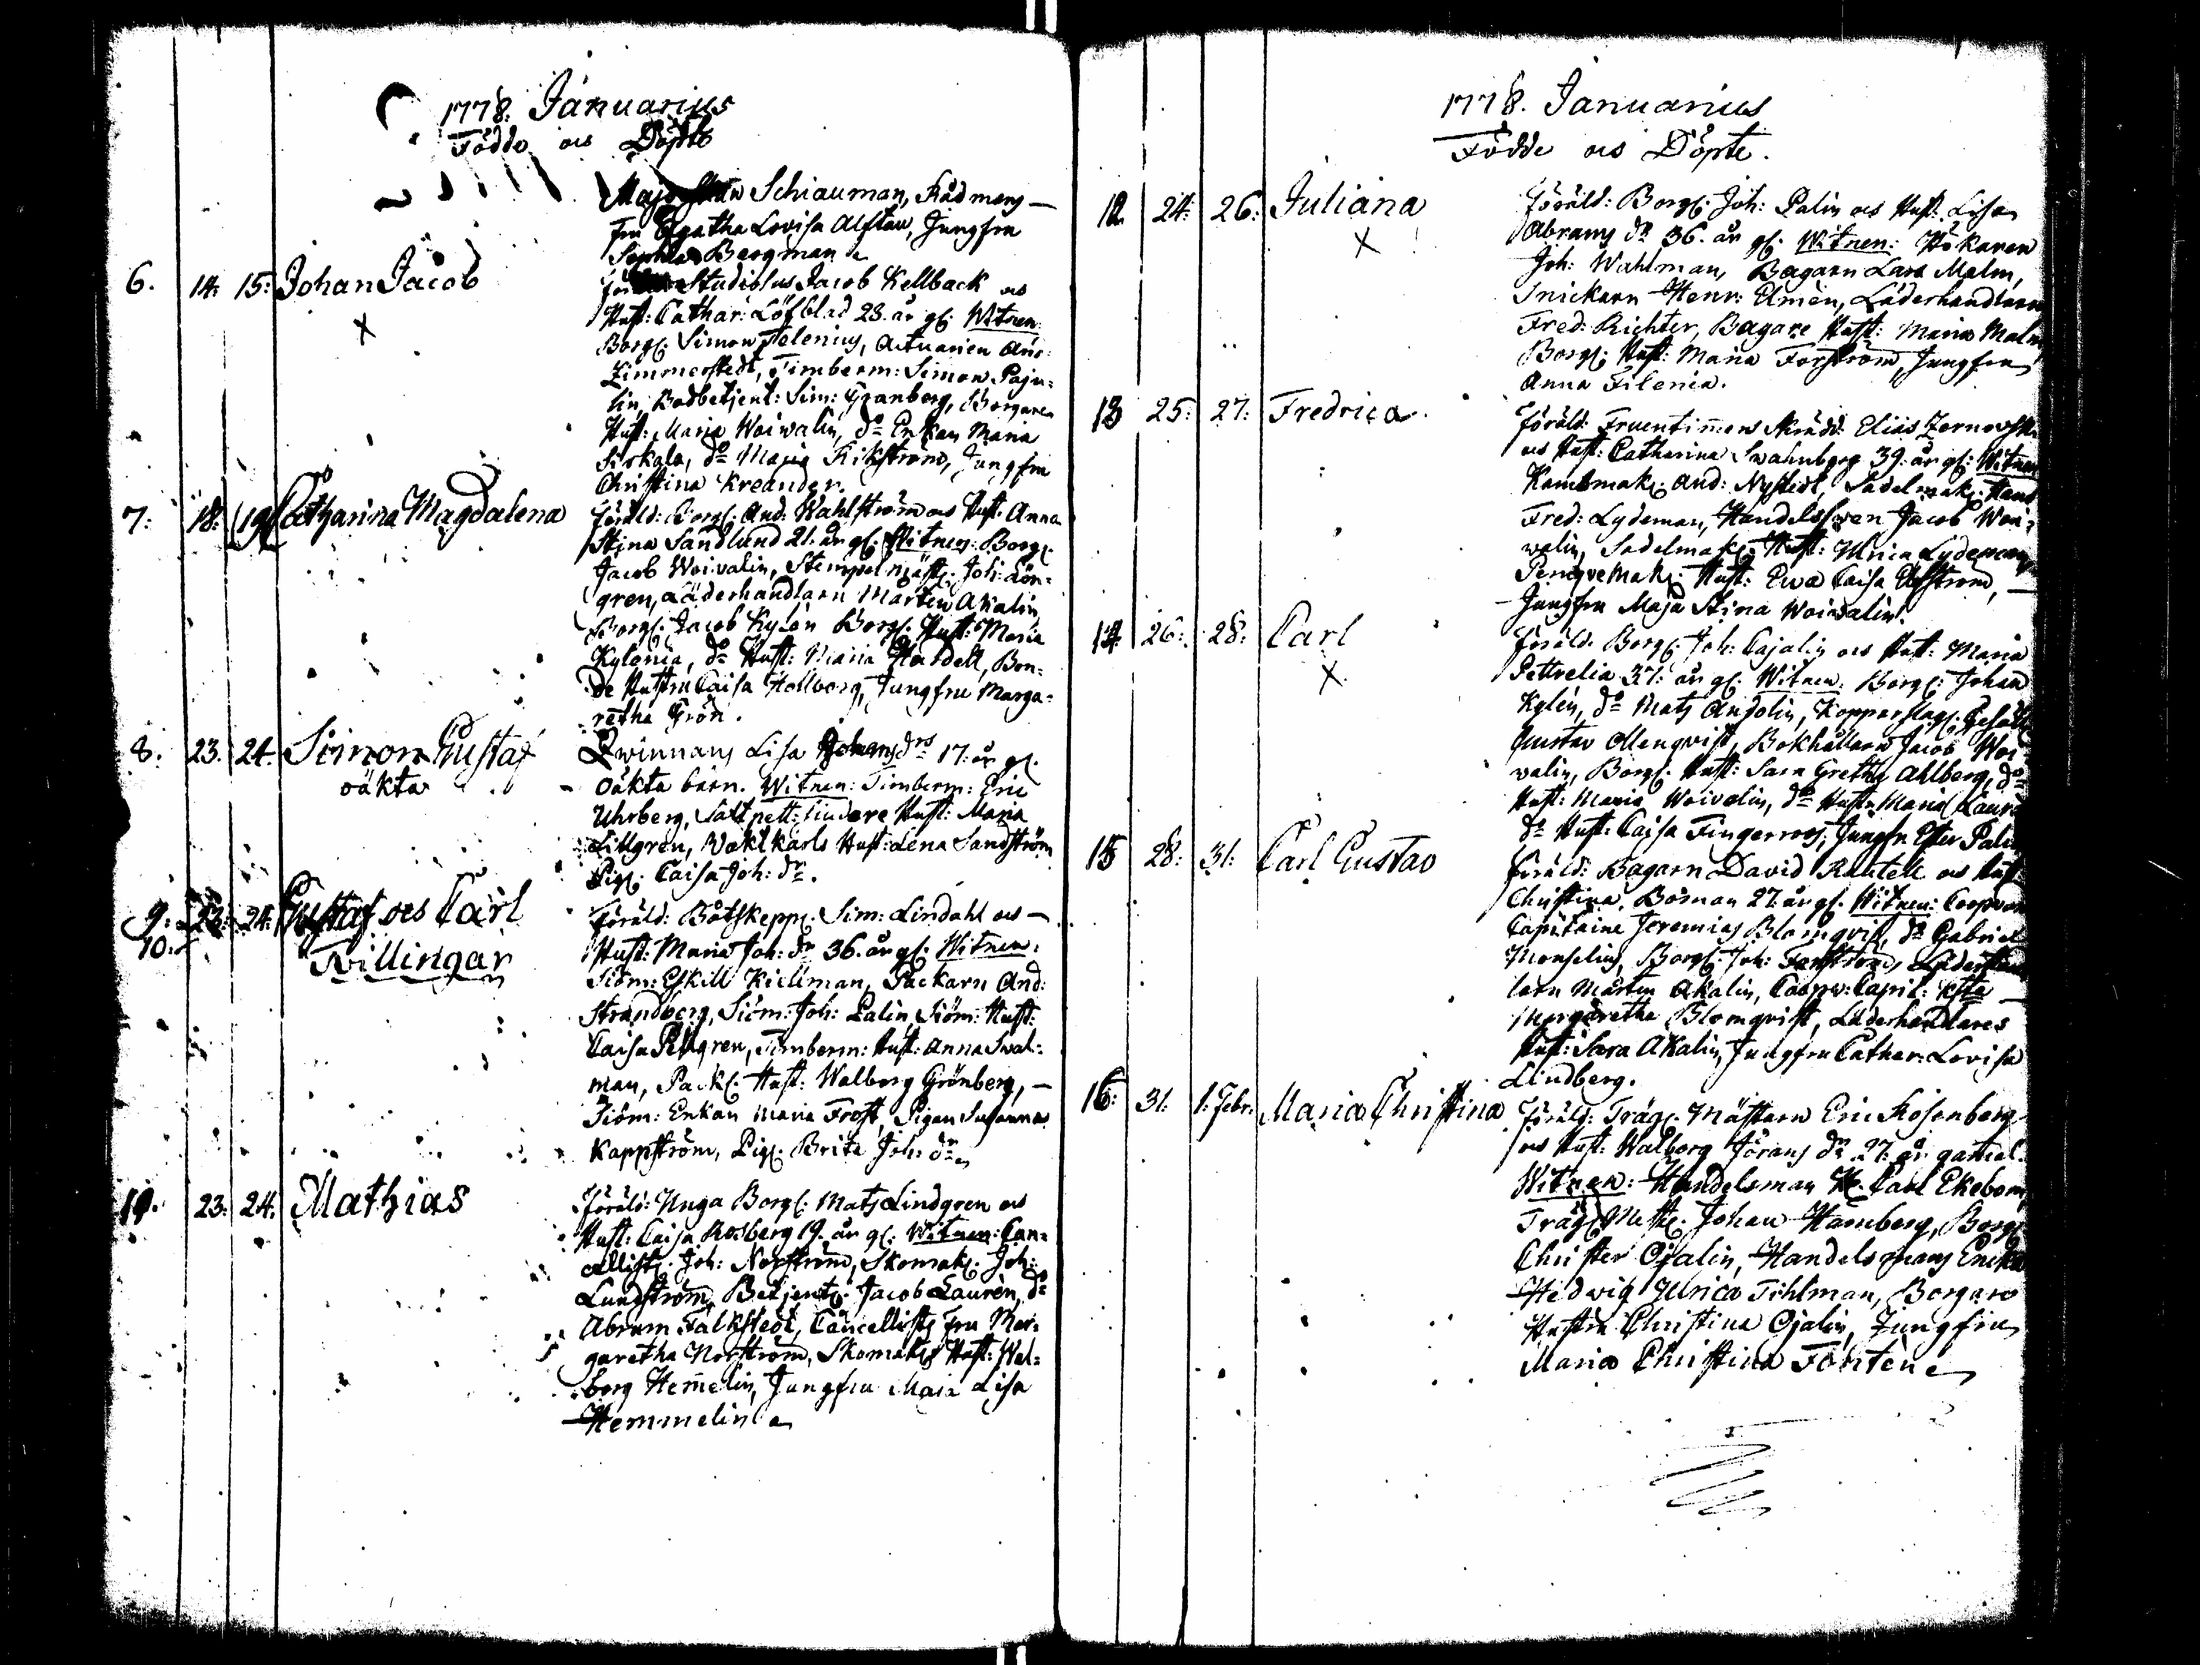 1778. Januarius
Födde och Döpte
Schiauman, Rådmans-
fru Agatha Lovisa Alftan, Jungfru
Sophia Bergman
6. 14: 15: Johan Jacob
X
Studiosus Jacob Kellback och
Hust: Cathar: Löfblad 23. år gl: Witnen:
Borg: Simon Telenius, Actuarien
Zimmerstedt, Timberm: Simon Paju-
lin, Bodbetjent: Sim: Granberg, Borgaren
Hust: Maria Woivalin, do Enkan Maria
do Maria Jungfru
Christina Kreander.
7: 18: 19 Catharina Magdalena
Föräld: Borg: And: Wahlström och Hust: Anna
Stina Sandlund 21. år gl: Witnen: Borg:
Jacob Woivalin, Stempelmäst: Joh: Lön-
gren, Läderhandlarn Mårten Akalin
Borg: Jacob Kylén Borg: Hust: Maria
Kylenia, do Hust: Maria Bon-
de Hustru Caisa Hollborg, Jungfru Marga-
retha Grön.
8. 23. 24. Simon Gustaf
oäkta
Qwinnans Lisa Johansdrs 17: år gl:
oäkta barn. Witnen: Timberm: Eric
Uhrberg, Saltpett: Siudere Hust: Maria
Lillgren, Waktkarls Hust: Lena Sandström
Pig: Caisa Joh: dr.
9. 23. 24. Gustaf och Carl
10. Tvillingar
Föräld: Båtskepp: Sim: Lindahl och
Hust: Maria Joh: dr 36. år gl: Witnen:
Siöm: Eskill Kiellman, Packarn And:
Strandberg, Siöm: Joh: Palin, Siöm: Hust:
Caisa Pettgren, Timberm: Hust: Anna Swal-
man, Pack: Hust: Walborg Grönberg,
Siöm: Enkan Maria Frost, Pigan Susanna
Kappström, Pig: Brita Joh: dr
11. 23: 24. Mathias
Föräld: Unga Borg: Mats Lindgren och
Hust: Caisa Rosberg 19. år gl: Witnen: Can-
cellist: Joh: Norström, Skomak: Joh:
Lundström, Betjent: Jacob Laurén, do
Abram Falkstedt, Cancellists Fru Mar-
garetha Norström, Skomak: Hust: Wal-
borg Hemelin, Jungfru Maia Lisa
Hemmelin
1778. Januarius
Födde och Döpte.
12 24: 26: Juliana
X
Föräld: Borg: Joh: Palin och Hust: Lisa
Abrams dr 36. år gl: Witnen: Hökaren
Joh: Wahlman, Bagarn Lars Malm,
Snickarn Henr: Elmén, Läderhandlarn
Fred: Richter, Bagare Hust: Maria Malm
Borg: Hust: Maria Forström, Jungfru
Anna Filenia.
13 25: 27: Fredrica
Föräld: Fruentimers Skrädd: Elias
och Hust: Catharina Swahnberg 39: år gl: Witnen
Kammak: And: Nystedt, Sadelmak: Hans
Fred: Lydeman, Handelssven Jacob Woi-
walin, Sadelmak: Hust: Ulrica Lydeman
Hust: Ewa Caisa
Jungfru Maja Stina Woivalin.
14 26: 28: Carl
X
Föräld: Borg: Joh: Cajalin och Hust: Maria
Pettrelia 37: år gl: Witnen: Borg: Johan
Kylén, do Mats Anjolin, Kopparslag: Gesäll
Gustav Allenqvist, Bokhållarn Jacob Woi-
walin, Borg: Hust: Sara Greta Ahlberg, do
Hust: Maria Woivalin, do Hust: Maria
do Hust: Caisa Fingerroos, Jungfr: Ester Palin
15 28: 31: Carl Gustav
Föräld: Bagarn David Rautell och Hust:
Christina Böman 27. år gl: Witnen: Coopvar
Capitaine Jeremias Blomqvist, do Gabriel
Monselius, Borg: Joh: Forström, Läderhand
larn Mårten Akalin, Coopw: Capit:
Margaretha Blomqvist, Läderhandlares
Hust: Sara Akalin, Jungfru Cathar: Lovisa
Lindberg.
16: 31. 1. Febr: Maria Christina
Föräld: Träg: Mästarn Eric Rosenberg
och Hust: Walborg Jörans dr 27. år gamal.
Witnen: Handelsman Hr Carl Ekebom,
Trägs Mest: Johan Hamberg, Borg:
Christer Ojalin, Handelsmans Enka
Hedwig Ulrica Tihlman, Borgare
Hustru Christina Ojalin, Jungfru
Maria Christina